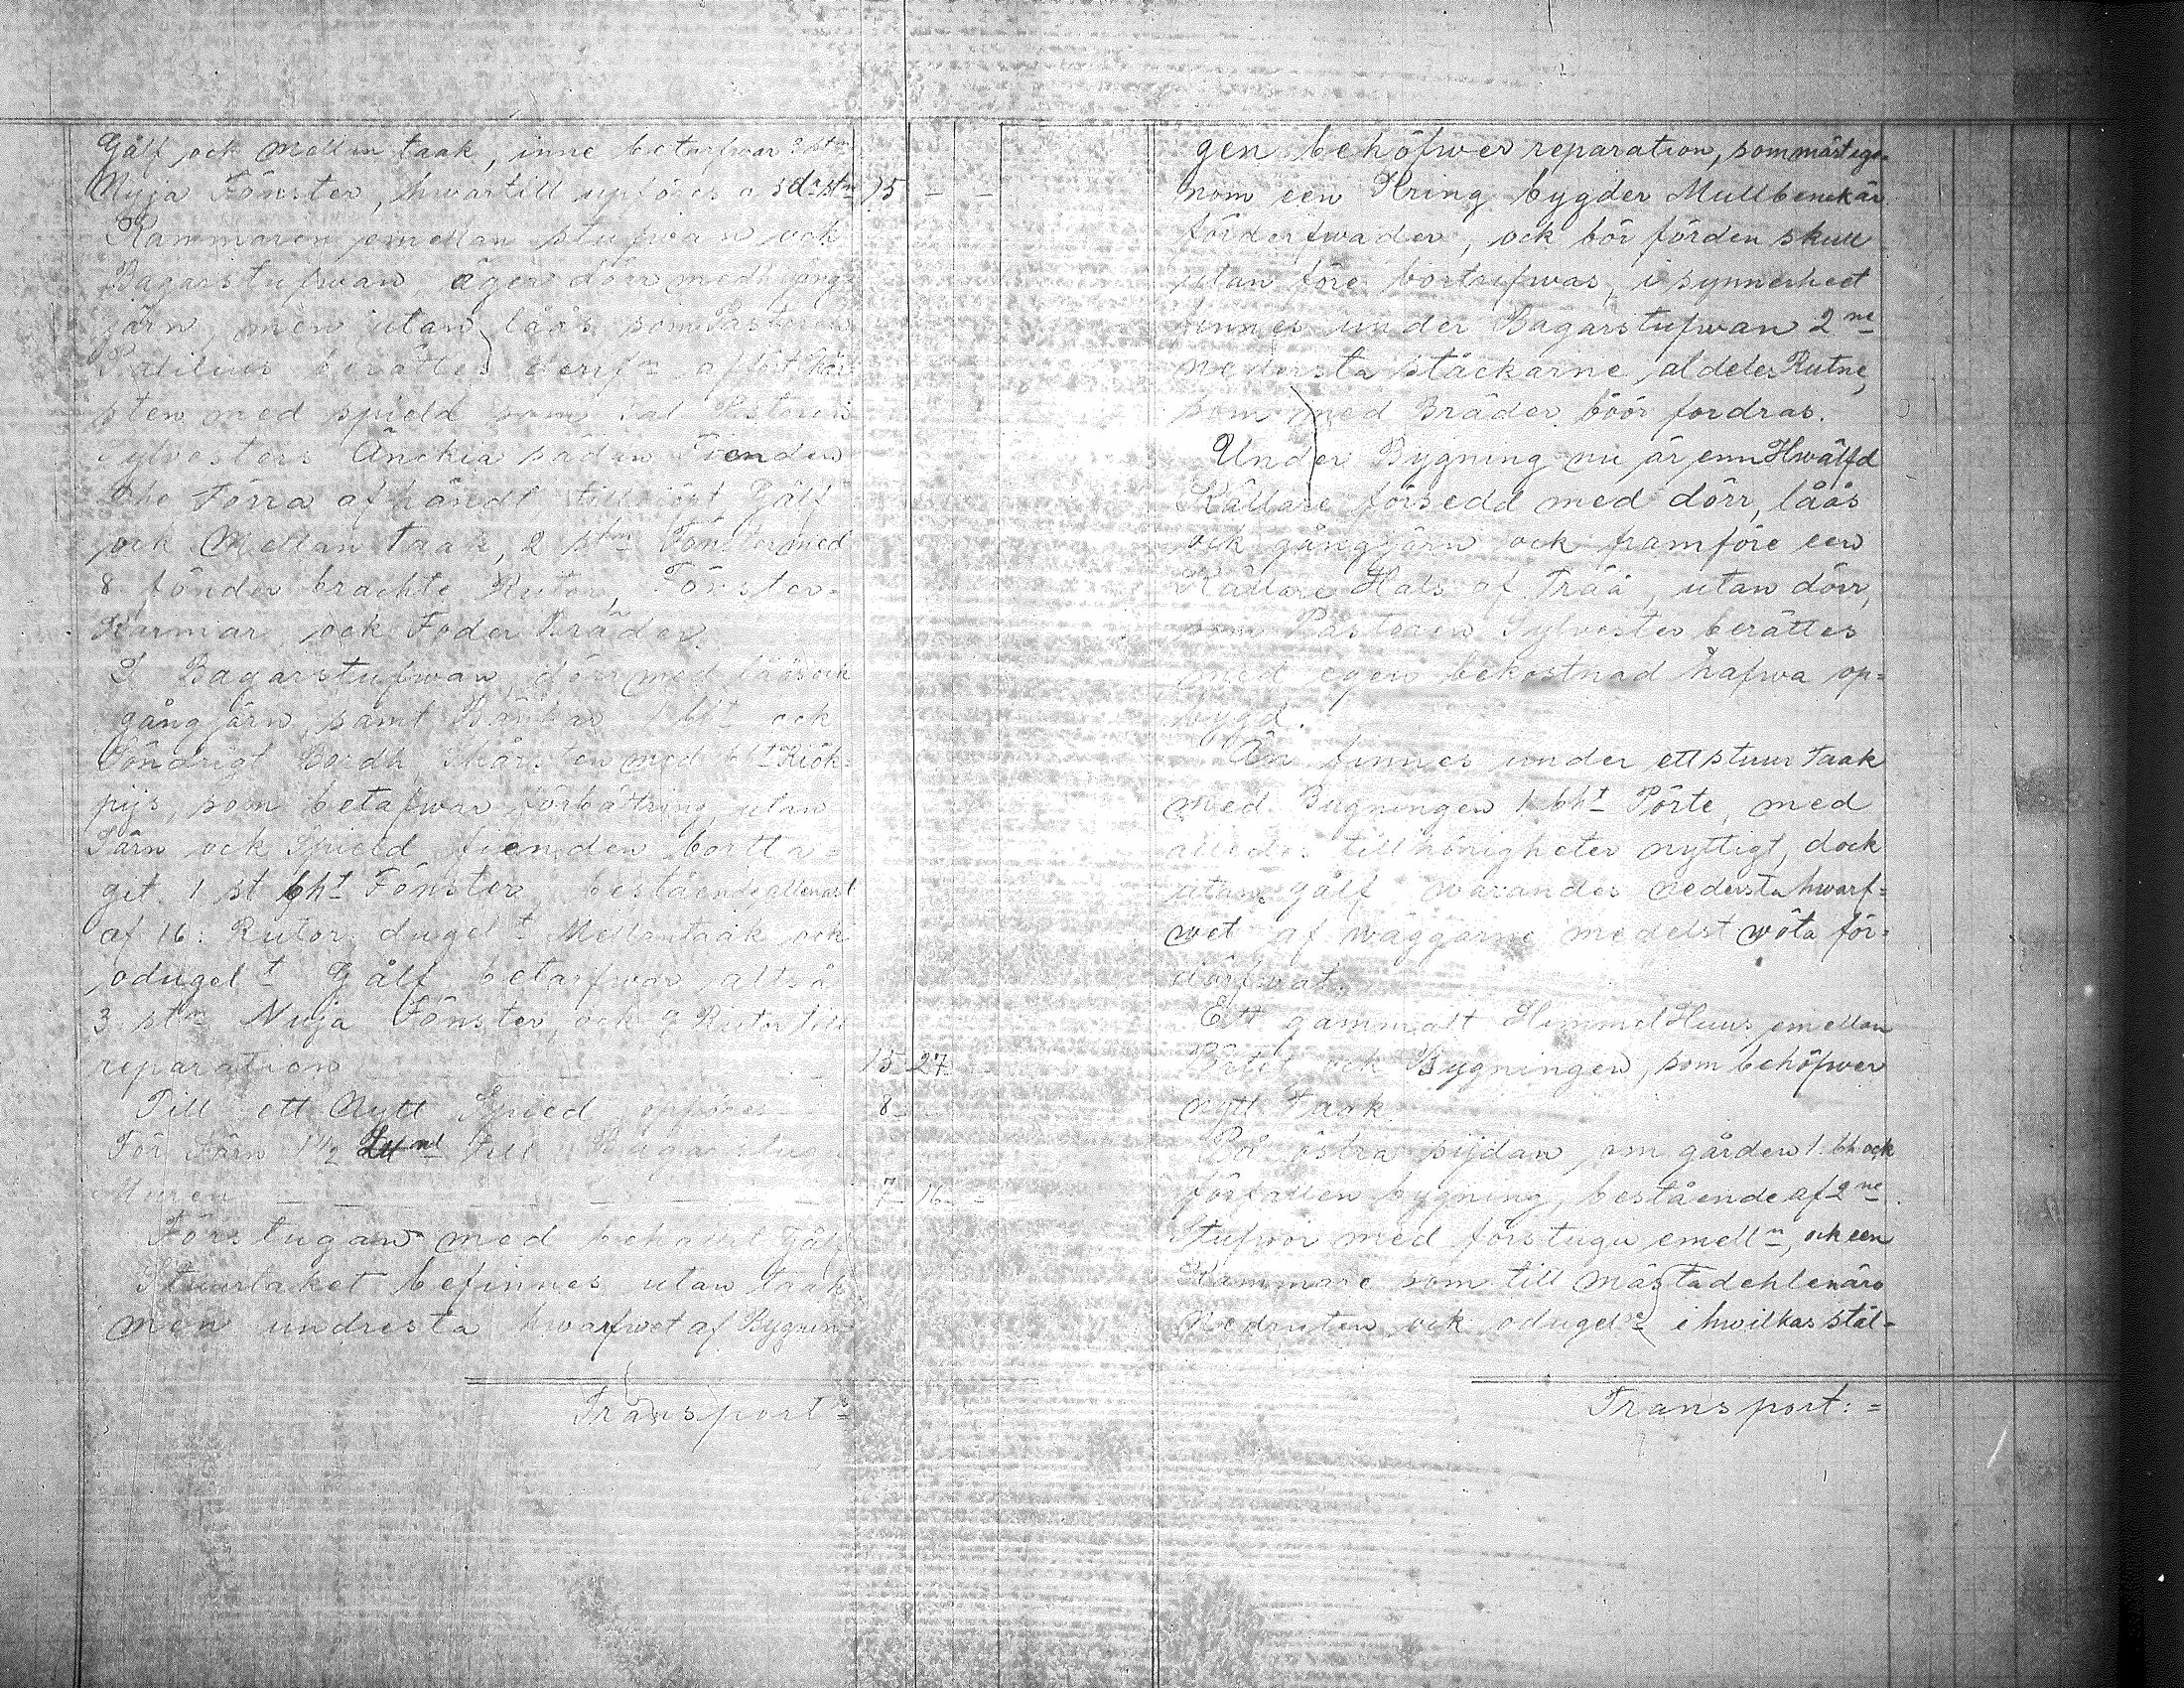 Gålf ock mellan taak, inne betarfwar 2 stn
Nyja Fönster, hwartill upföres a 3 dr stn 15 - -
Kammaren emellan stufwan och
Bagarstufwan, äger dörr med gång-
järn, men utan låås som Pastoren
berättes afført
sten med spield som Sal Pastoren
Sylvesters Änckia sådan Fienden
the Förra afhändt tillsögt, Gålf
ock Mellan taak, 2 stn Fönster med
8 sönder brachte Rutor, Fönster-
Karmar, ock Foder Bräder.
I Bagarstufwan dörr med låås ock
gångjärn, samt Bänkar 1 bht ock
Söndrigt Bordh, Skårsten med bht Kiök-
pijs, som betafwar förbättring, utan
Järn ock Spield fienden bortta-
git. 1 st bht Fönster, bestående allenast
af 16: Rutor, dugelt Mellantaak ock
odugelt Gålf betarfwar altså
3 stn Nyja Fönster, ock 9 Rutor till
reparation - - - 15 27 -
Till ett Nytt Spied opföres 8 -
För Järn 1 1/2 till Bagarstugu
Muren - - - - - - 7 16 -
Förstugan med behållit Gålf
Stuurtaket befinnes utan taak
men undresta hwarfwet af Bygnin-
Transport=
gen behöfwer reparation, som mäst ige-
nom een Kring bygder Mullbenckär
förderfwader, ock bör förden skull
utan före bortrifwas, i synnerheet
finnes under Bagarstufwan 2ne
nedersta ståckarne aldeles Rutne,
som med Bräder böör fordras.
Under Bygning nu är enn Hwälfd
Källare försedd med dörr, låås
ock gångjärn ock framföre een
Källare Hals af Trää, utan dörr,
som Pastoren Sylvester berättes
med egen bekostnad hafwa op-
bygd.
Än finnes under ett stuur taak
med Bygningen 1 bht Pörte, med
alledes tillhörigheter nyttigt, dock
utan gålf warandes nedersta hwarf-
wet af wäggarne medelst wöta för-
därfwat.
Ett gammalt HimmelHuus emellan
Pörtet ock Bygningen, som behöfwer
nytt taak
På östra sijdan om gården 1 bh ock
förfallen bygning, bestående af 2ne
Stufwor med förstugu emelln, ock een
Kammare som till mästadehlenäro
Nedruten ock odugele i hwilkas stäl-
Transport: =